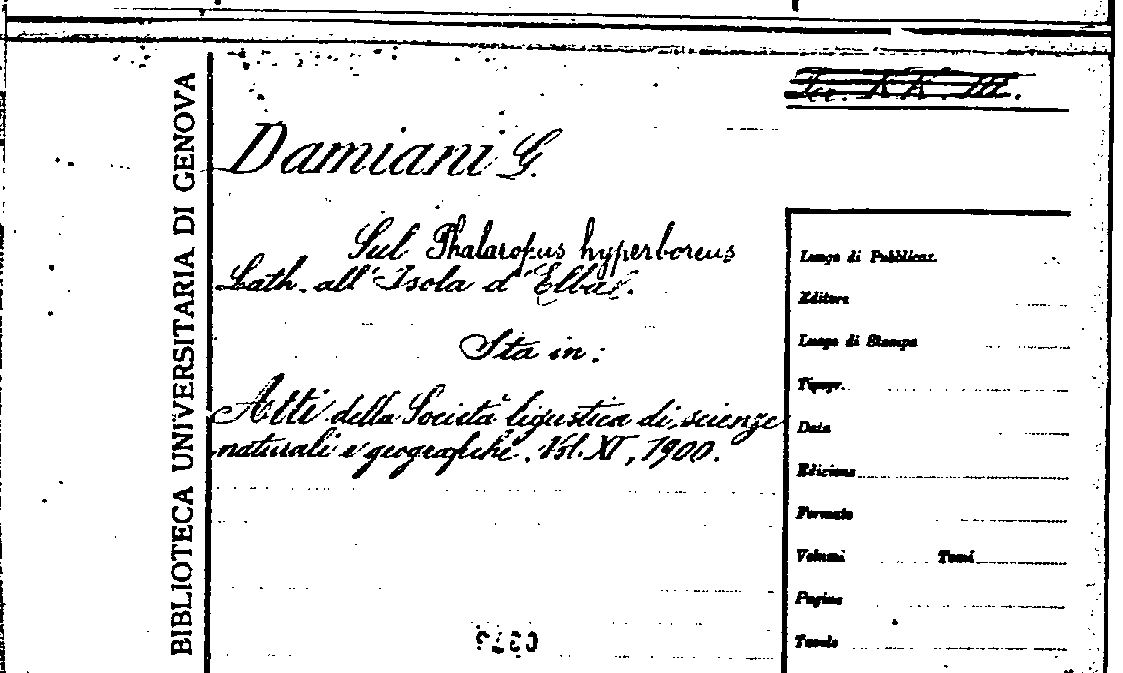 BIBLIOTECA UNIVERSITARIA DI GENOVA
Damiani G.
Sul Phalaropus hyperboreus
Lath. all'Isola d'Elba.
Sta in:
Atti della Società ligustica di scienze
naturali e geografiche. Vol. XI, 1900.
Luogo di Pubblicaz.
Editore
Luogo di Stampa
Tipogr.
Data
Edizione
Formato
Volumi Tomi
Pagine
Tavole